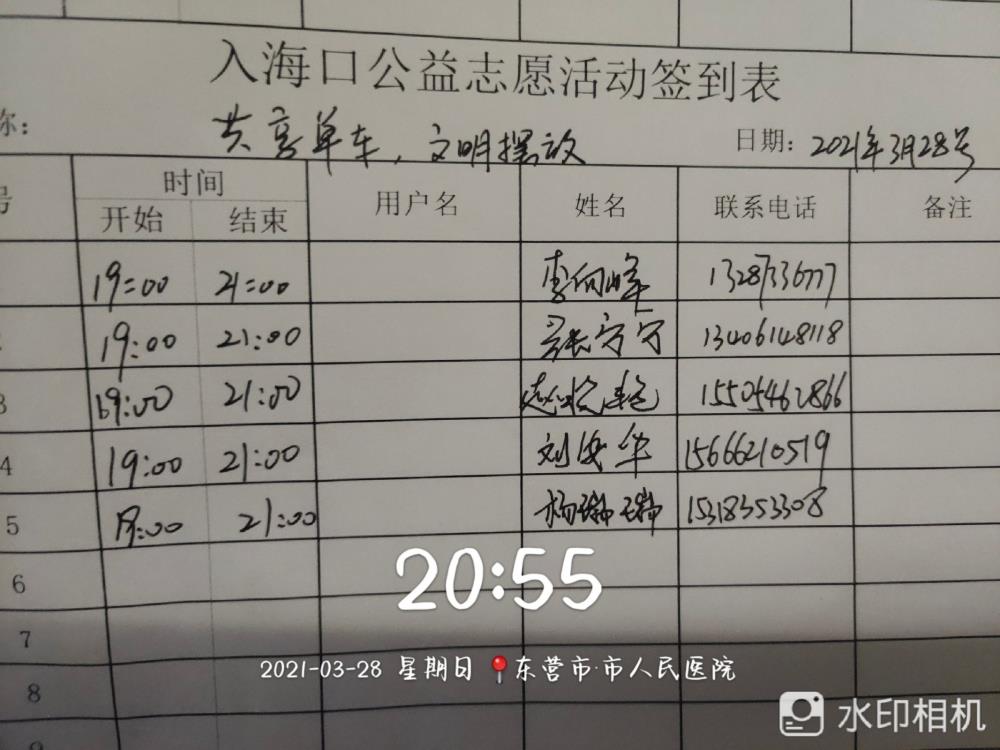 入海口公益志愿活动签到表
称: 共享单车,文明摆放 日期: 2021年3月28号
号 时间 用户名 姓名 联系电话 备注
开始 结束
19:00 21:00 李向峰 13287336777
2 19:00 21:00 宁宁 13406148118
3 19:00 21:00 赵 15505462866
4 19:00 21:00 刘俊华 15666210519
5 19:00 21:00 杨瑞瑞 15318353308
6
7
8
9
20:55
2021-03-28 星期日 东营市·市人民医院
水印相机